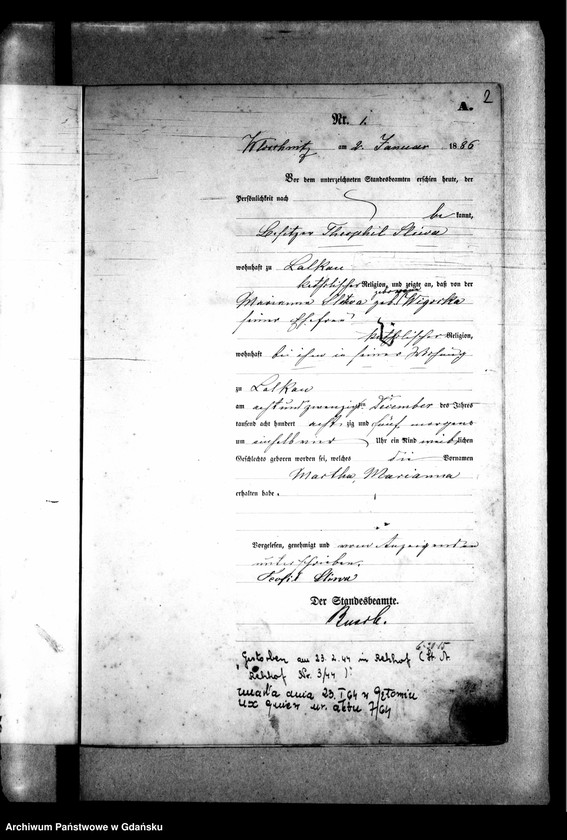 2
A.
Nr. 1.
am 2. Januar 1886
Vor dem unterzeichneten Standesbeamten erschien heute, der
Persönlichkeit nach
be kannt,
Besitzer Theophil Sliwa
wohnhaft zu Lalkau
katholischer Religion, und zeigte an, daß von der
Marianna Sliwa geborene Wigorka
seiner Ehefrau
katholischer Religion,
wohnhaft bei ihm in seiner Wohnung
zu Lalkau
am achtundzwanzigsten December des Jahres
tausend acht hundert achtzig und fünf morgens
um Uhr ein Kind weiblichen
Geschlechts geboren worden sei, welches die Vornamen
Martha, Marianna
erhalten habe.
Vorgelesen, genehmigt und vom Anzeigenden
unterschrieben.
Teofil Sliwa
Der Standesbeamte.
Gestorben am 23. 2. 44 in Rehhof (St. A.
Rehhof Nr. 3/44)
zmarła dnia 23. I 64 w
USC Gniew nr. aktu 7/64
Archiwum Państwowe w Gdańsku